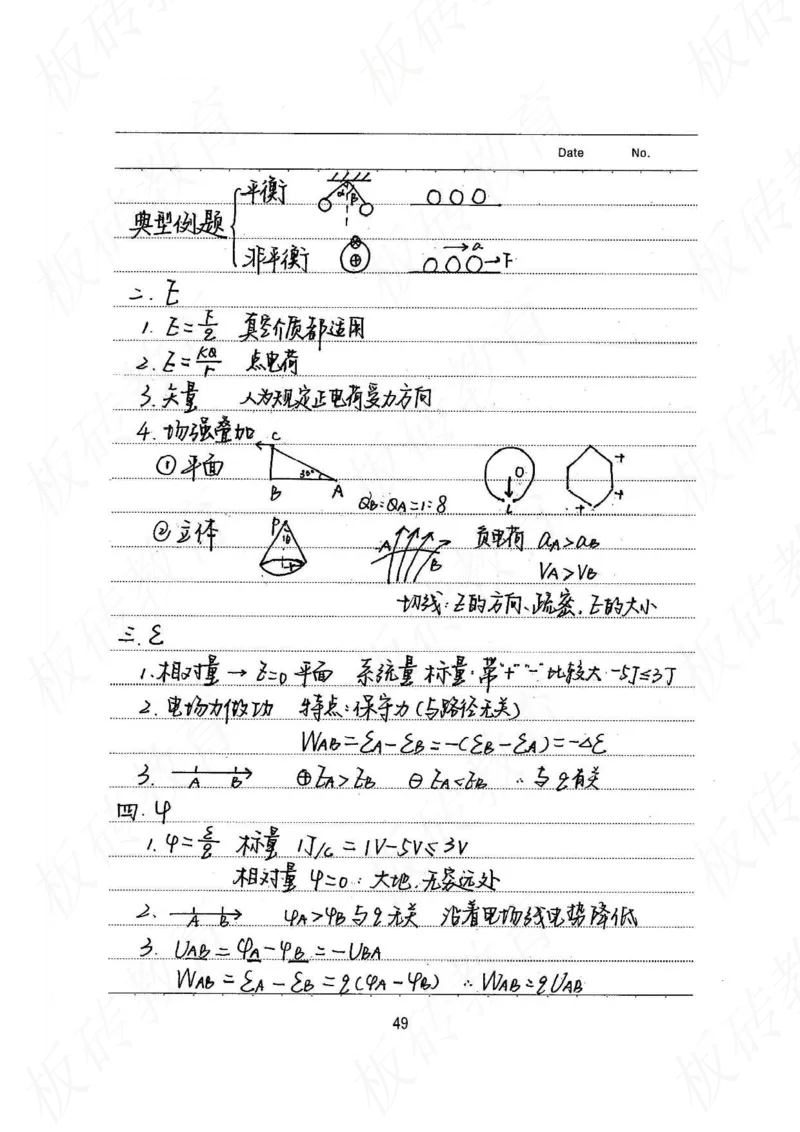 Date No.
典型例题 平衡 α β
非平衡 a F
二. E
1. E=F/q 真空介质都适用
2. E=KQ/r 点电荷
3. 矢量 人为规定正电荷受力方向
4. 场强叠加 C
① 平面 30° B A QB:QA=1:8 O L + + +
② 立体 P θ r A B 负电荷 aA>aB
VA>VB
切线:E的方向、疏密.E的大小
三. ε
1.相对量→E=0平面 系统量 标量:带"+""-"比较大 -5J≤3J
2. 电场力做功 特点:保守力(与路径无关)
WAB=εA-εB=-(εB-εA)=-Δε
3. A B ⊕EA>EB ⊖EA<EB ∴与q有关
四. φ
1. φ=ε/q 标量 1J/c=1V -5V≤3V
相对量 φ=0:大地.无穷远处
2. A B φA>φB与q无关 沿着电场线电势降低
3. UAB=φA-φB=-UBA
WAB=εA-εB=q(φA-φB) ∴WAB=qUAB
49
板砖教育